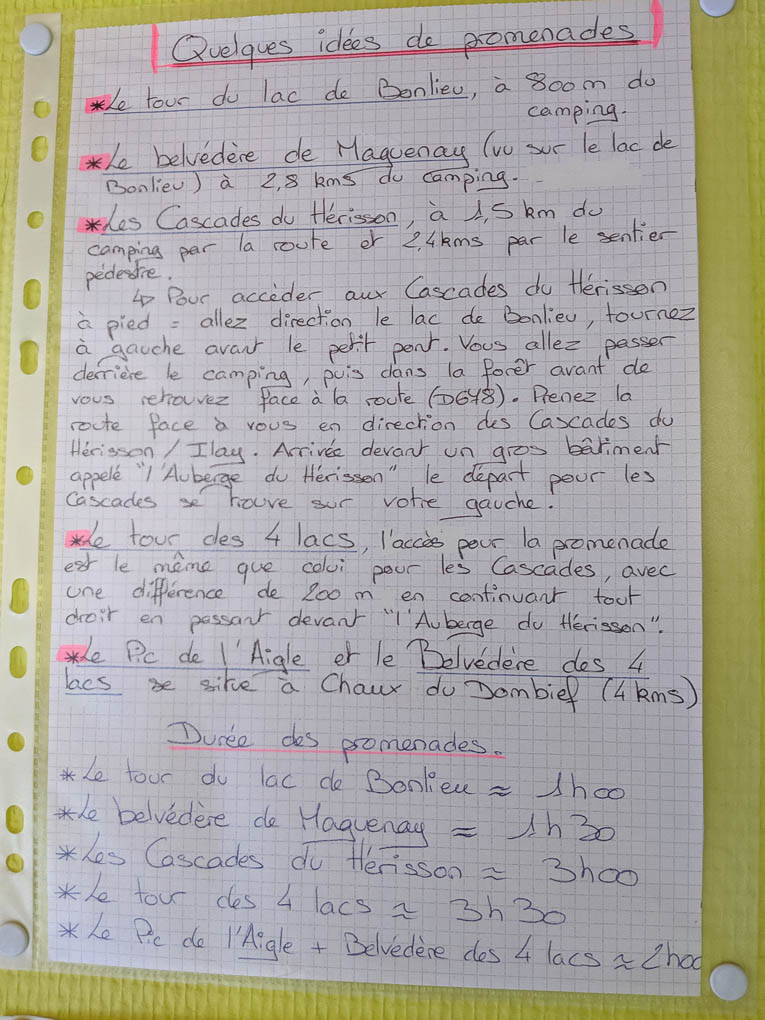 Quelques idées de promenades
*Le tour du lac de Bonlieu, à 800m du
camping.
*Le belvédère de Maquenay (vu sur le lac de
Bonlieu) à 2,8 kms du camping.
*Les Cascades du Hérisson, à 1,5 km du
camping par la route et 2,4kms par le sentier
pédestre.
↳ Pour accéder aux Cascades du Hérisson
à pied = allez direction le lac de Bonlieu, tournez
à gauche avant le petit pont. Vous allez passer
derrière le camping, puis dans la forêt avant de
vous retrouvez face à la route (D678). Prenez la
route face à vous en direction des Cascades du
Hérisson / Ilay. Arrivée devant un gros bâtiment
appelé "l'Auberge du Hérisson" le départ pour les
Cascades se trouve sur votre gauche.
*Le tour des 4 lacs, l'accès pour la promenade
est le même que celui pour les Cascades, avec
une différence de 200 m en continuant tout
droit en passant devant "l'Auberge du Hérisson".
*Le Pic de l'Aigle et le Belvédère des 4
lacs se situe à Chaux du Dombief (4 kms)
Durée des promenades.
*Le tour du lac de Bonlieu ≈ 1h00
*Le belvédère de Maquenay ≈ 1h30
*Les Cascades du Hérisson ≈ 3h00
*Le tour des 4 lacs ≈ 3h30
*Le Pic de l'Aigle + Belvédère des 4 lacs ≈ 2h00